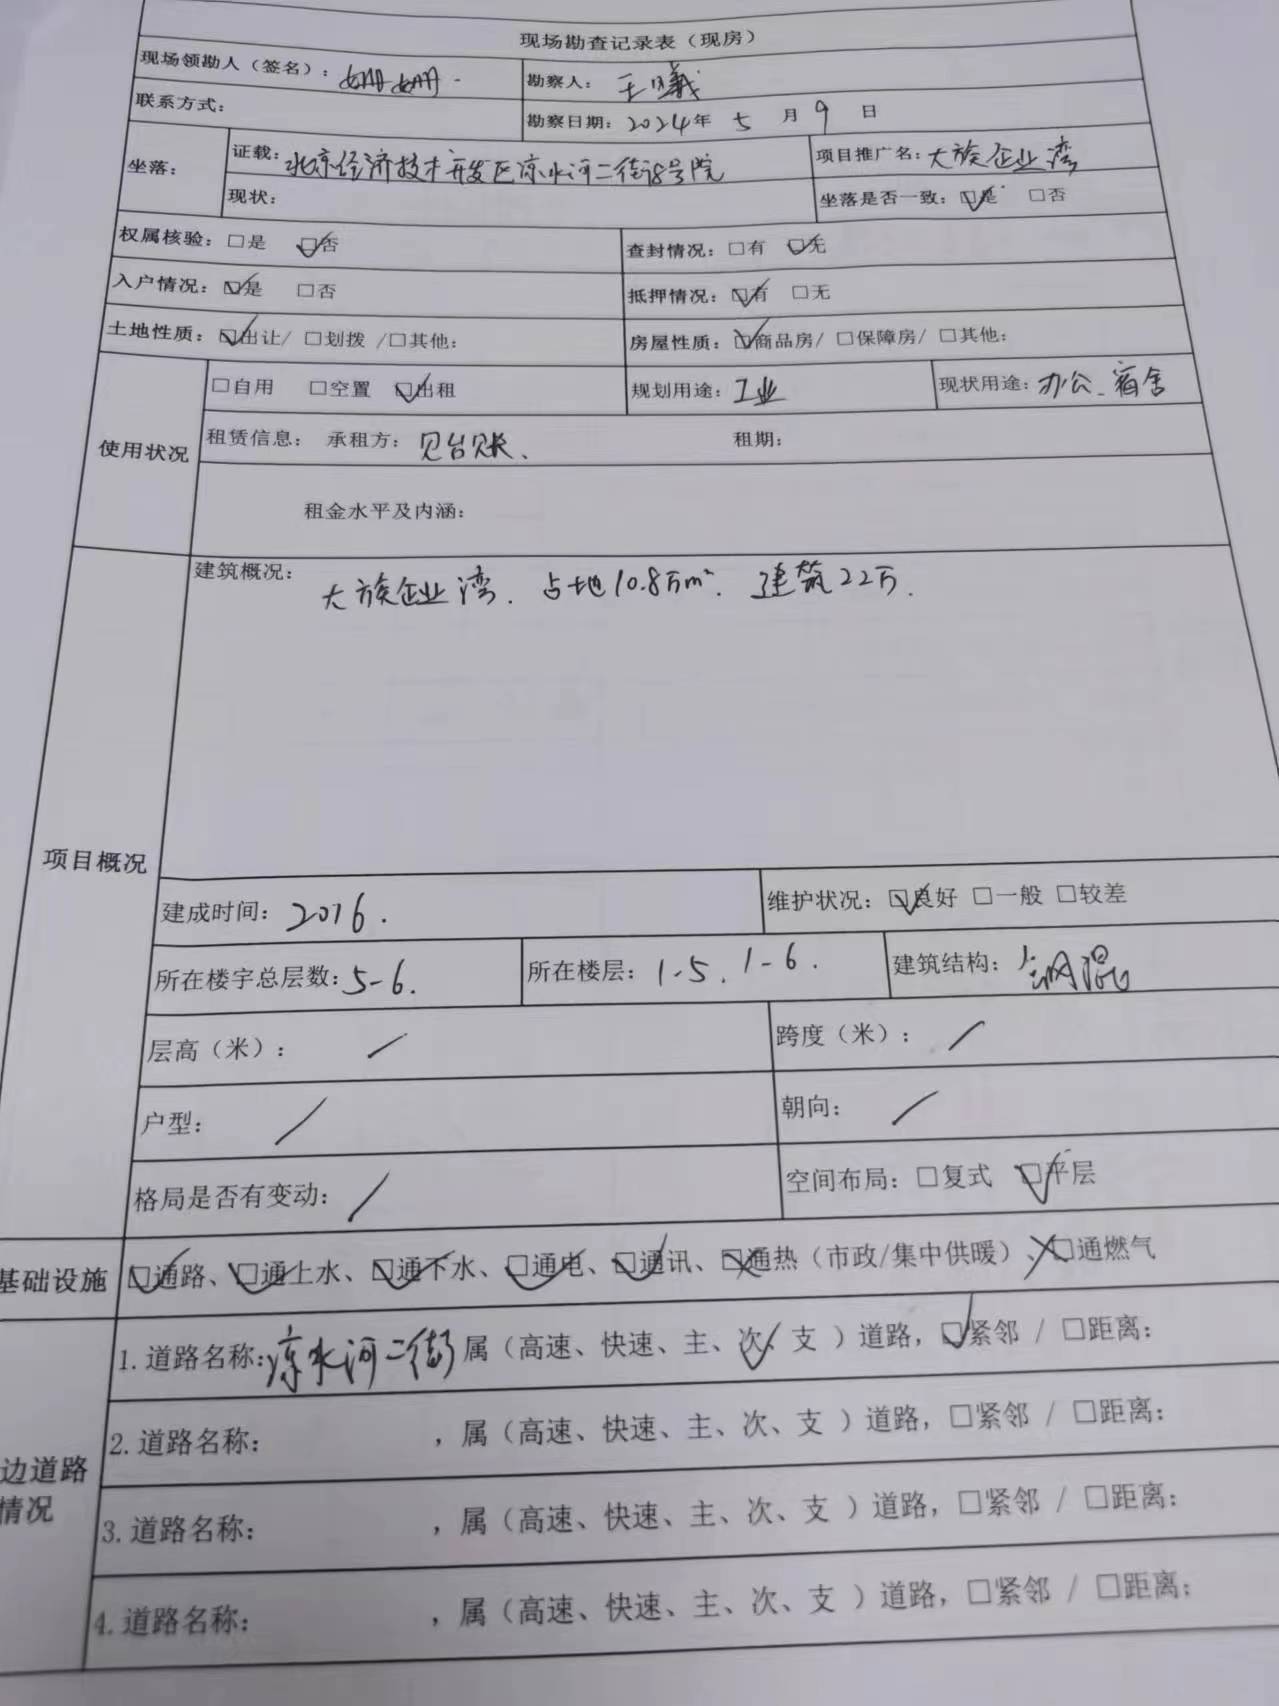 现场勘查记录表（现房）
现场领勘人（签名）：姗姗. 勘察人：王曦
联系方式： 勘察日期：2024年 5 月 9 日
坐落： 证载：北京经济技术开发区凉水河二街8号院 项目推广名：大族企业湾
现状： 坐落是否一致：☑是 □否
权属核验：□是 ☑否 查封情况：□有 ☑无
入户情况：☑是 □否 抵押情况：☑有 □无
土地性质：☑出让/ □划拨 /□其他： 房屋性质：☑商品房/ □保障房/ □其他：
使用状况 □自用 □空置 ☑出租 规划用途：工业 现状用途：办公、宿舍
租赁信息： 承租方：见台账、 租期：
租金水平及内涵：
项目概况 建筑概况：大族企业湾. 占地10.8万m². 建筑22万.
建成时间：2016. 维护状况：☑良好 □一般 □较差
所在楼宇总层数：5-6. 所在楼层：1-5. 1-6. 建筑结构：钢混
层高（米）： / 跨度（米）： /
户型： / 朝向： /
格局是否有变动： / 空间布局：□复式 ☑平层
基础设施 ☑通路、☑通上水、☑通下水、☑通电、☑通讯、☒通热（市政/集中供暖）、☒通燃气
边道路情况 1.道路名称：凉水河二街 属（高速、快速、主、次✓、支 ）道路，☑紧邻 / □距离：
2.道路名称： ，属（高速、快速、主、次、支 ）道路，□紧邻 / □距离：
3.道路名称： ，属（高速、快速、主、次、支 ）道路，□紧邻 / □距离：
4.道路名称： ，属（高速、快速、主、次、支 ）道路，□紧邻 / □距离：